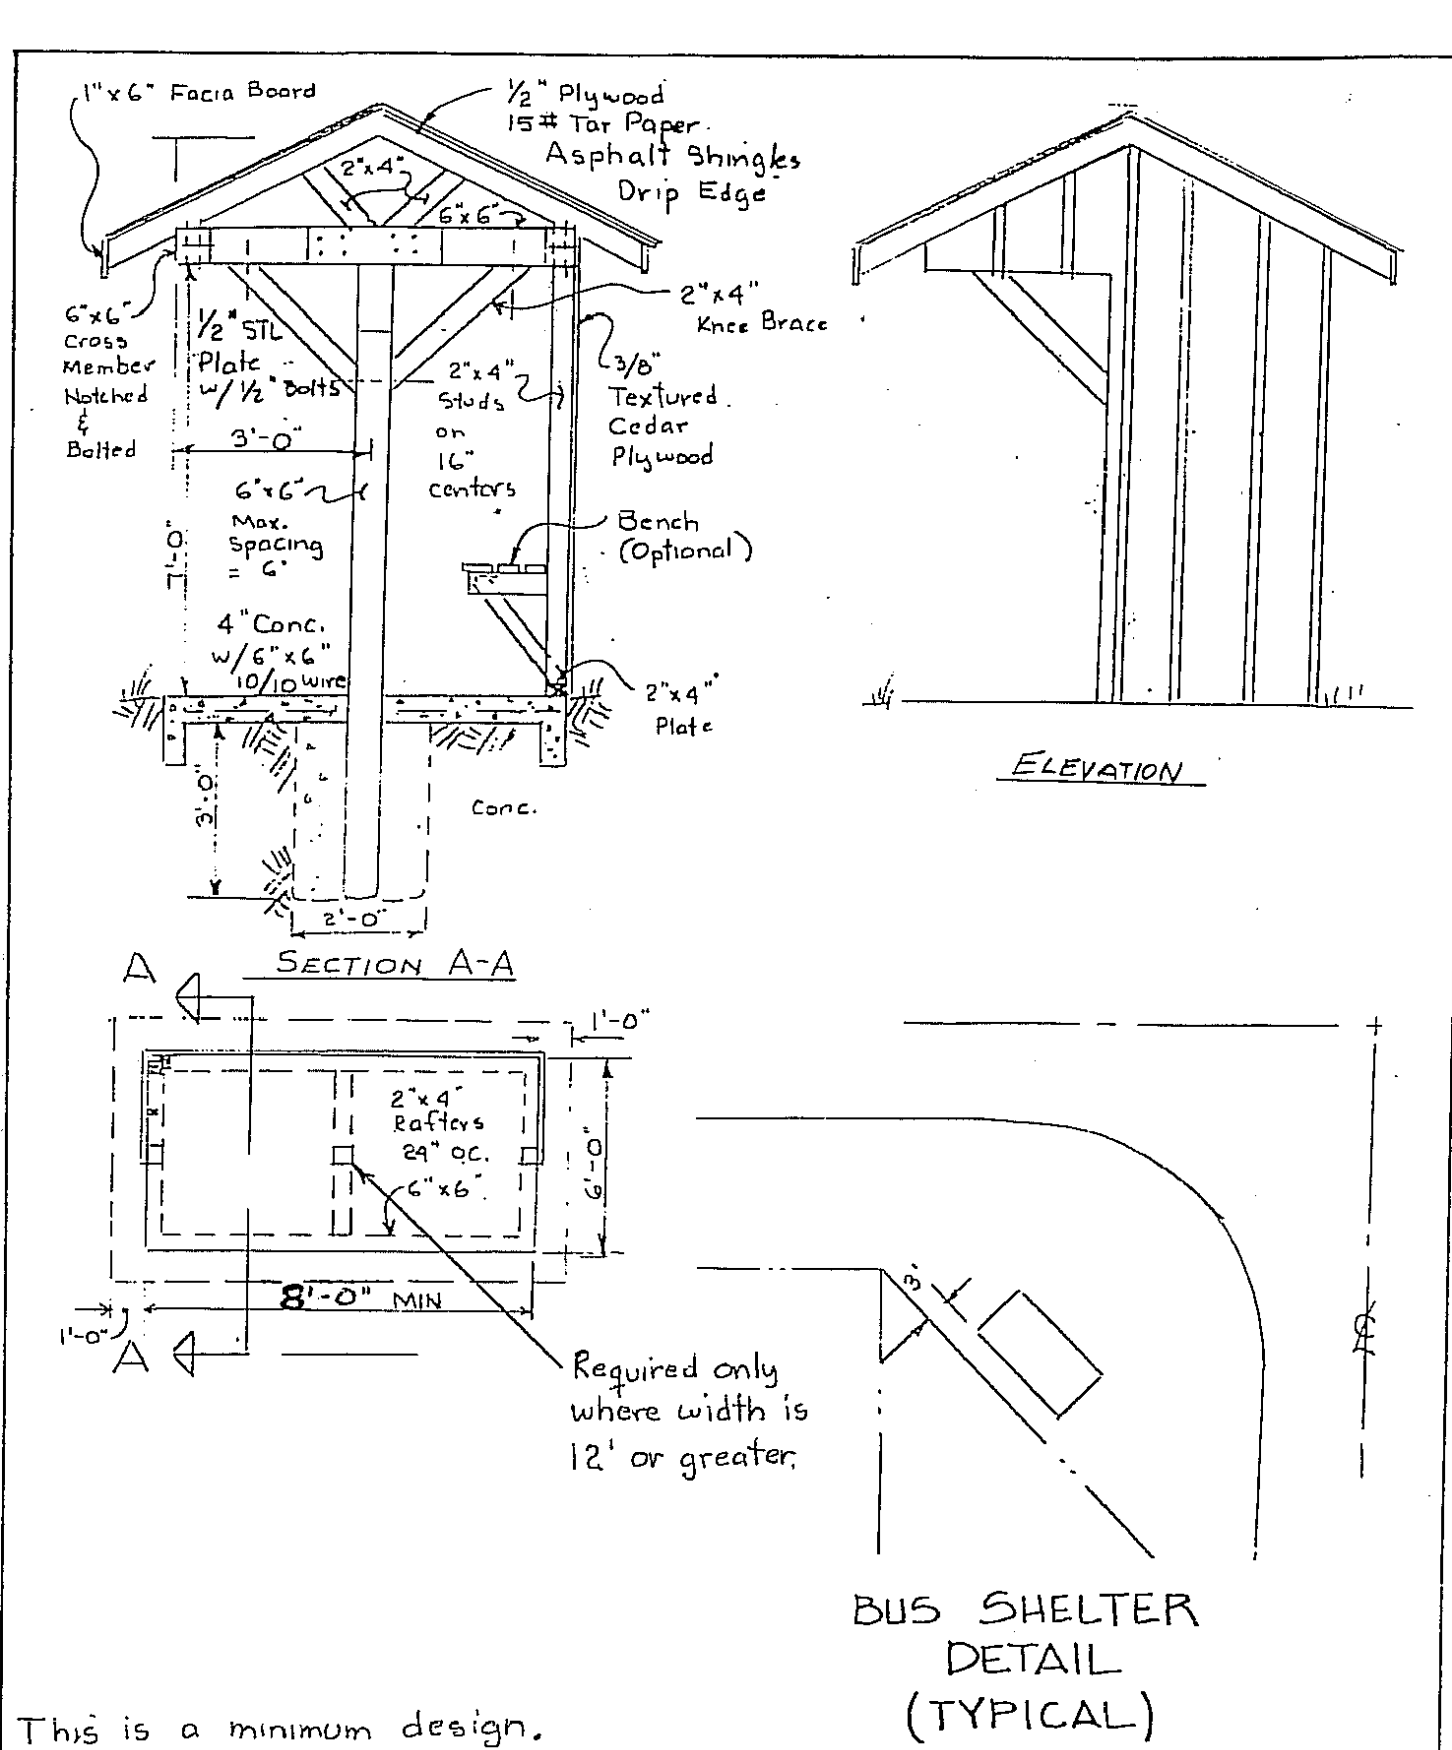 1"x6" Facia Board
1/2" Plywood
15# Tar Paper.
Asphalt Shingles
Drip Edge
2"x4"
6"x6"
6"x6"
Cross
Member
Notched
&
Bolted
1/2" STL
Plate
w/ 1/2" Bolts
2"x4"
Knee Brace
3/8"
Textured
Cedar
Plywood
2"x4"
Studs
on
16"
Centers
3'-0"
6"x6"
Max.
Spacing
= 6'
Bench
(Optional)
4" Conc.
w/6"x6"
10/10 wire
2"x4"
Plate
3'-0"
Conc.
2'-0"
SECTION A-A
ELEVATION
A
1'-0"
2"x4"
Rafters
24" O.C.
6"x6"
6'-0"
8'-0" MIN
1'-0"
A
Required only
where width is
12' or greater.
3'
BUS SHELTER
DETAIL
(TYPICAL)
This is a minimum design.